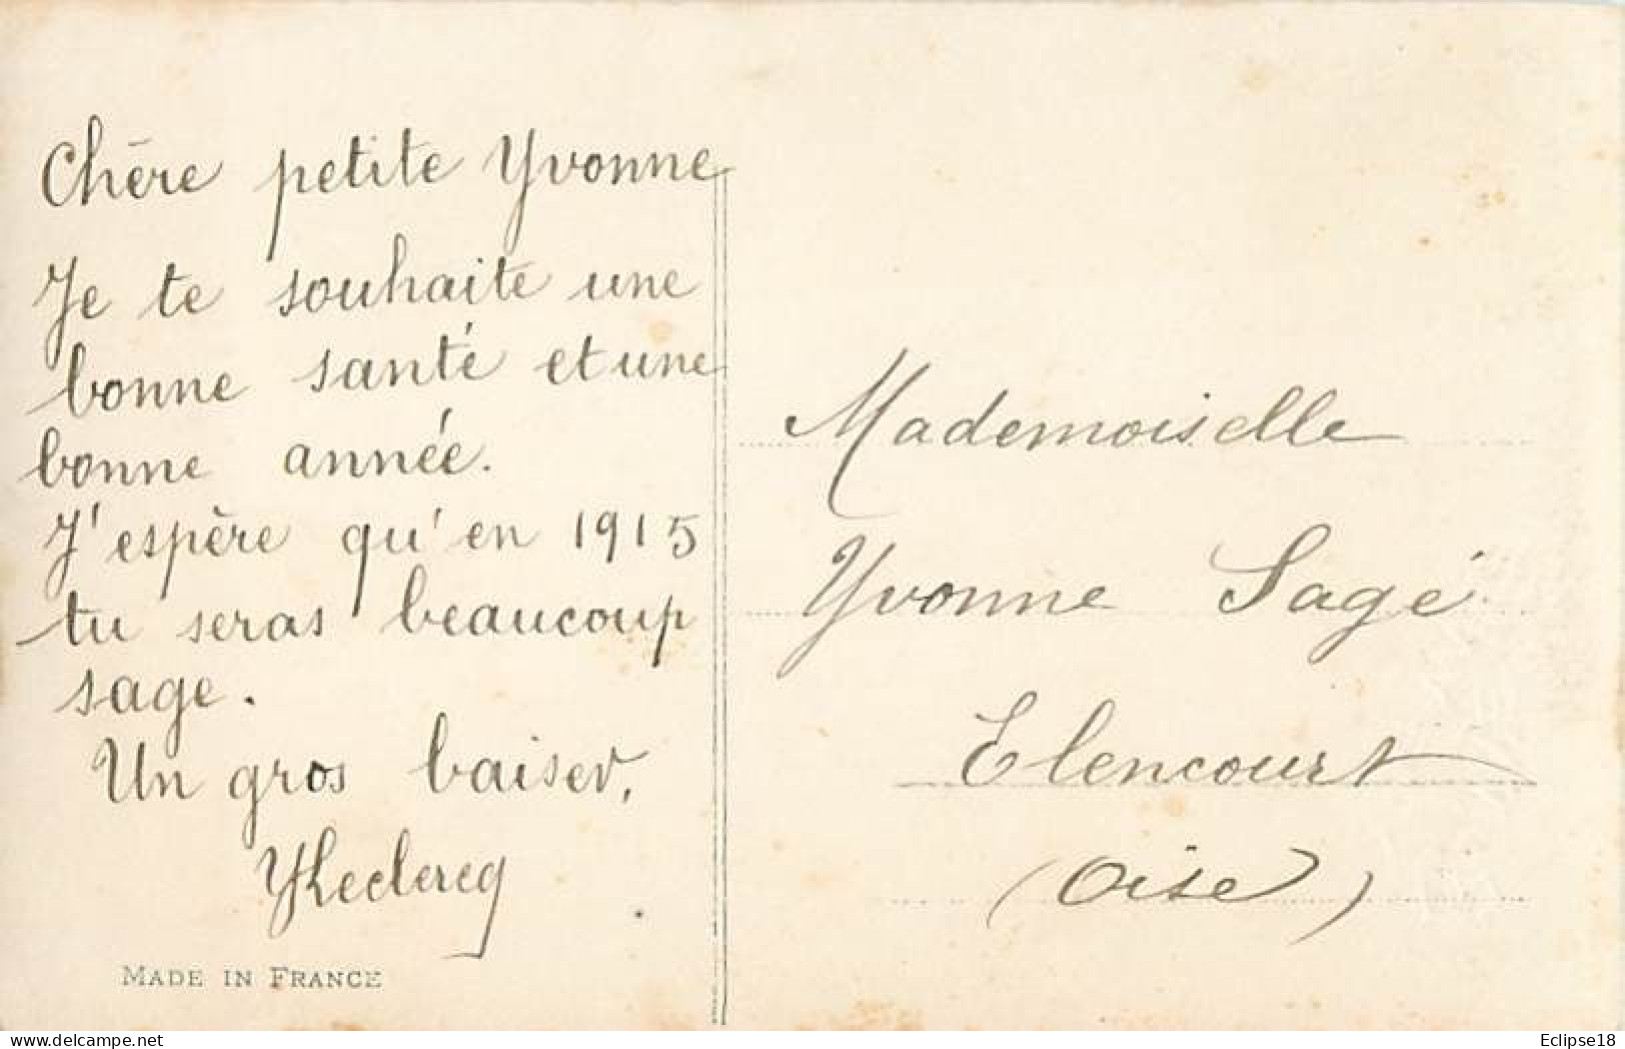 Chère petite Yvonne
Je te souhaite une
bonne santé et une
bonne année.
J'espère qu'en 1915
tu seras beaucoup
sage.
Un gros baiser,
YLeclercq
MADE IN FRANCE
Mademoiselle
Yvonne Sagé
Elencourt
(Oise)
delcampe.net
Eclipse18